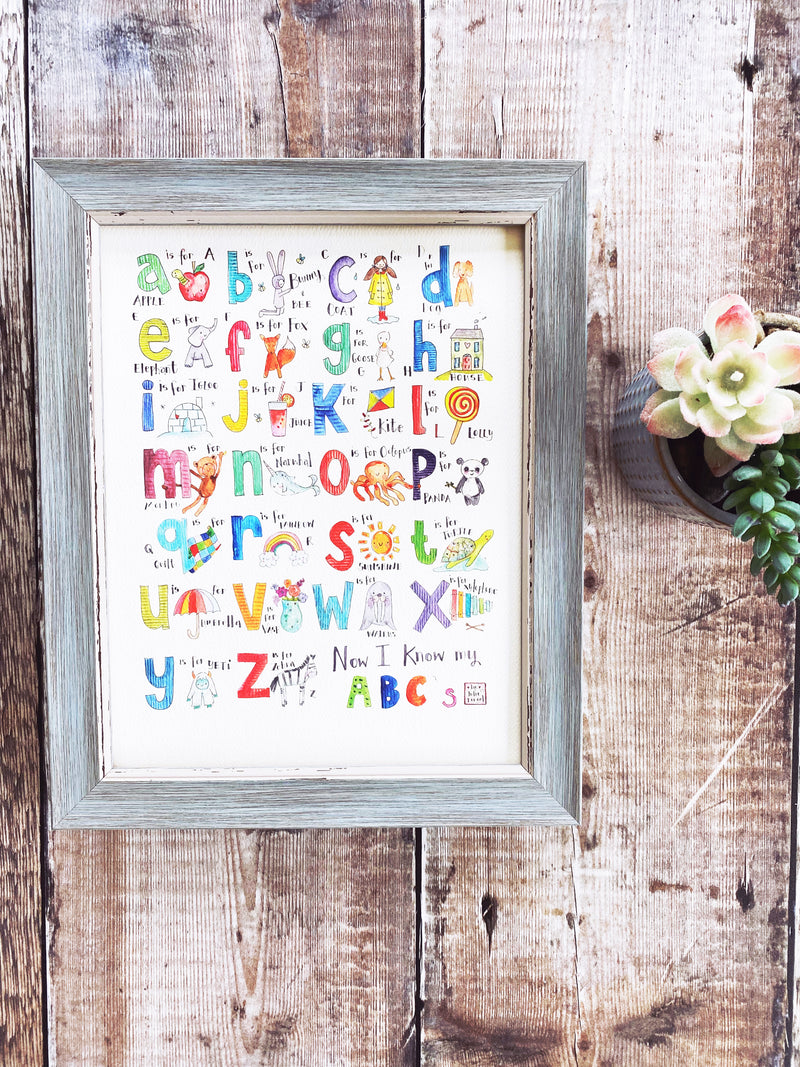 a is for A
APPLE
b is for Bunny & BEE
C c is for
COAT
D d is for
DOG
E e is for
Elephant
F f is for Fox
g IS FOR GOOSE G
h is for H
HOUSE
i is for Igloo
j is for J
JUICE
K IS FOR
Kite
l IS FOR L
Lolly
m is FOR
Monkey
n is for Narwhal
o is for Octopus
p IS FOR
PANDA
Q q is FOR
Quilt
r is for RAINBOW R
s is for
SUNSHINE
t is FOR TURTLE
u is
Umbrella
v is for VASE
w is for
WALRUS
x is for Xylophone
y is for YETI
z is for Zebra Z
Now I Know my
ABC's